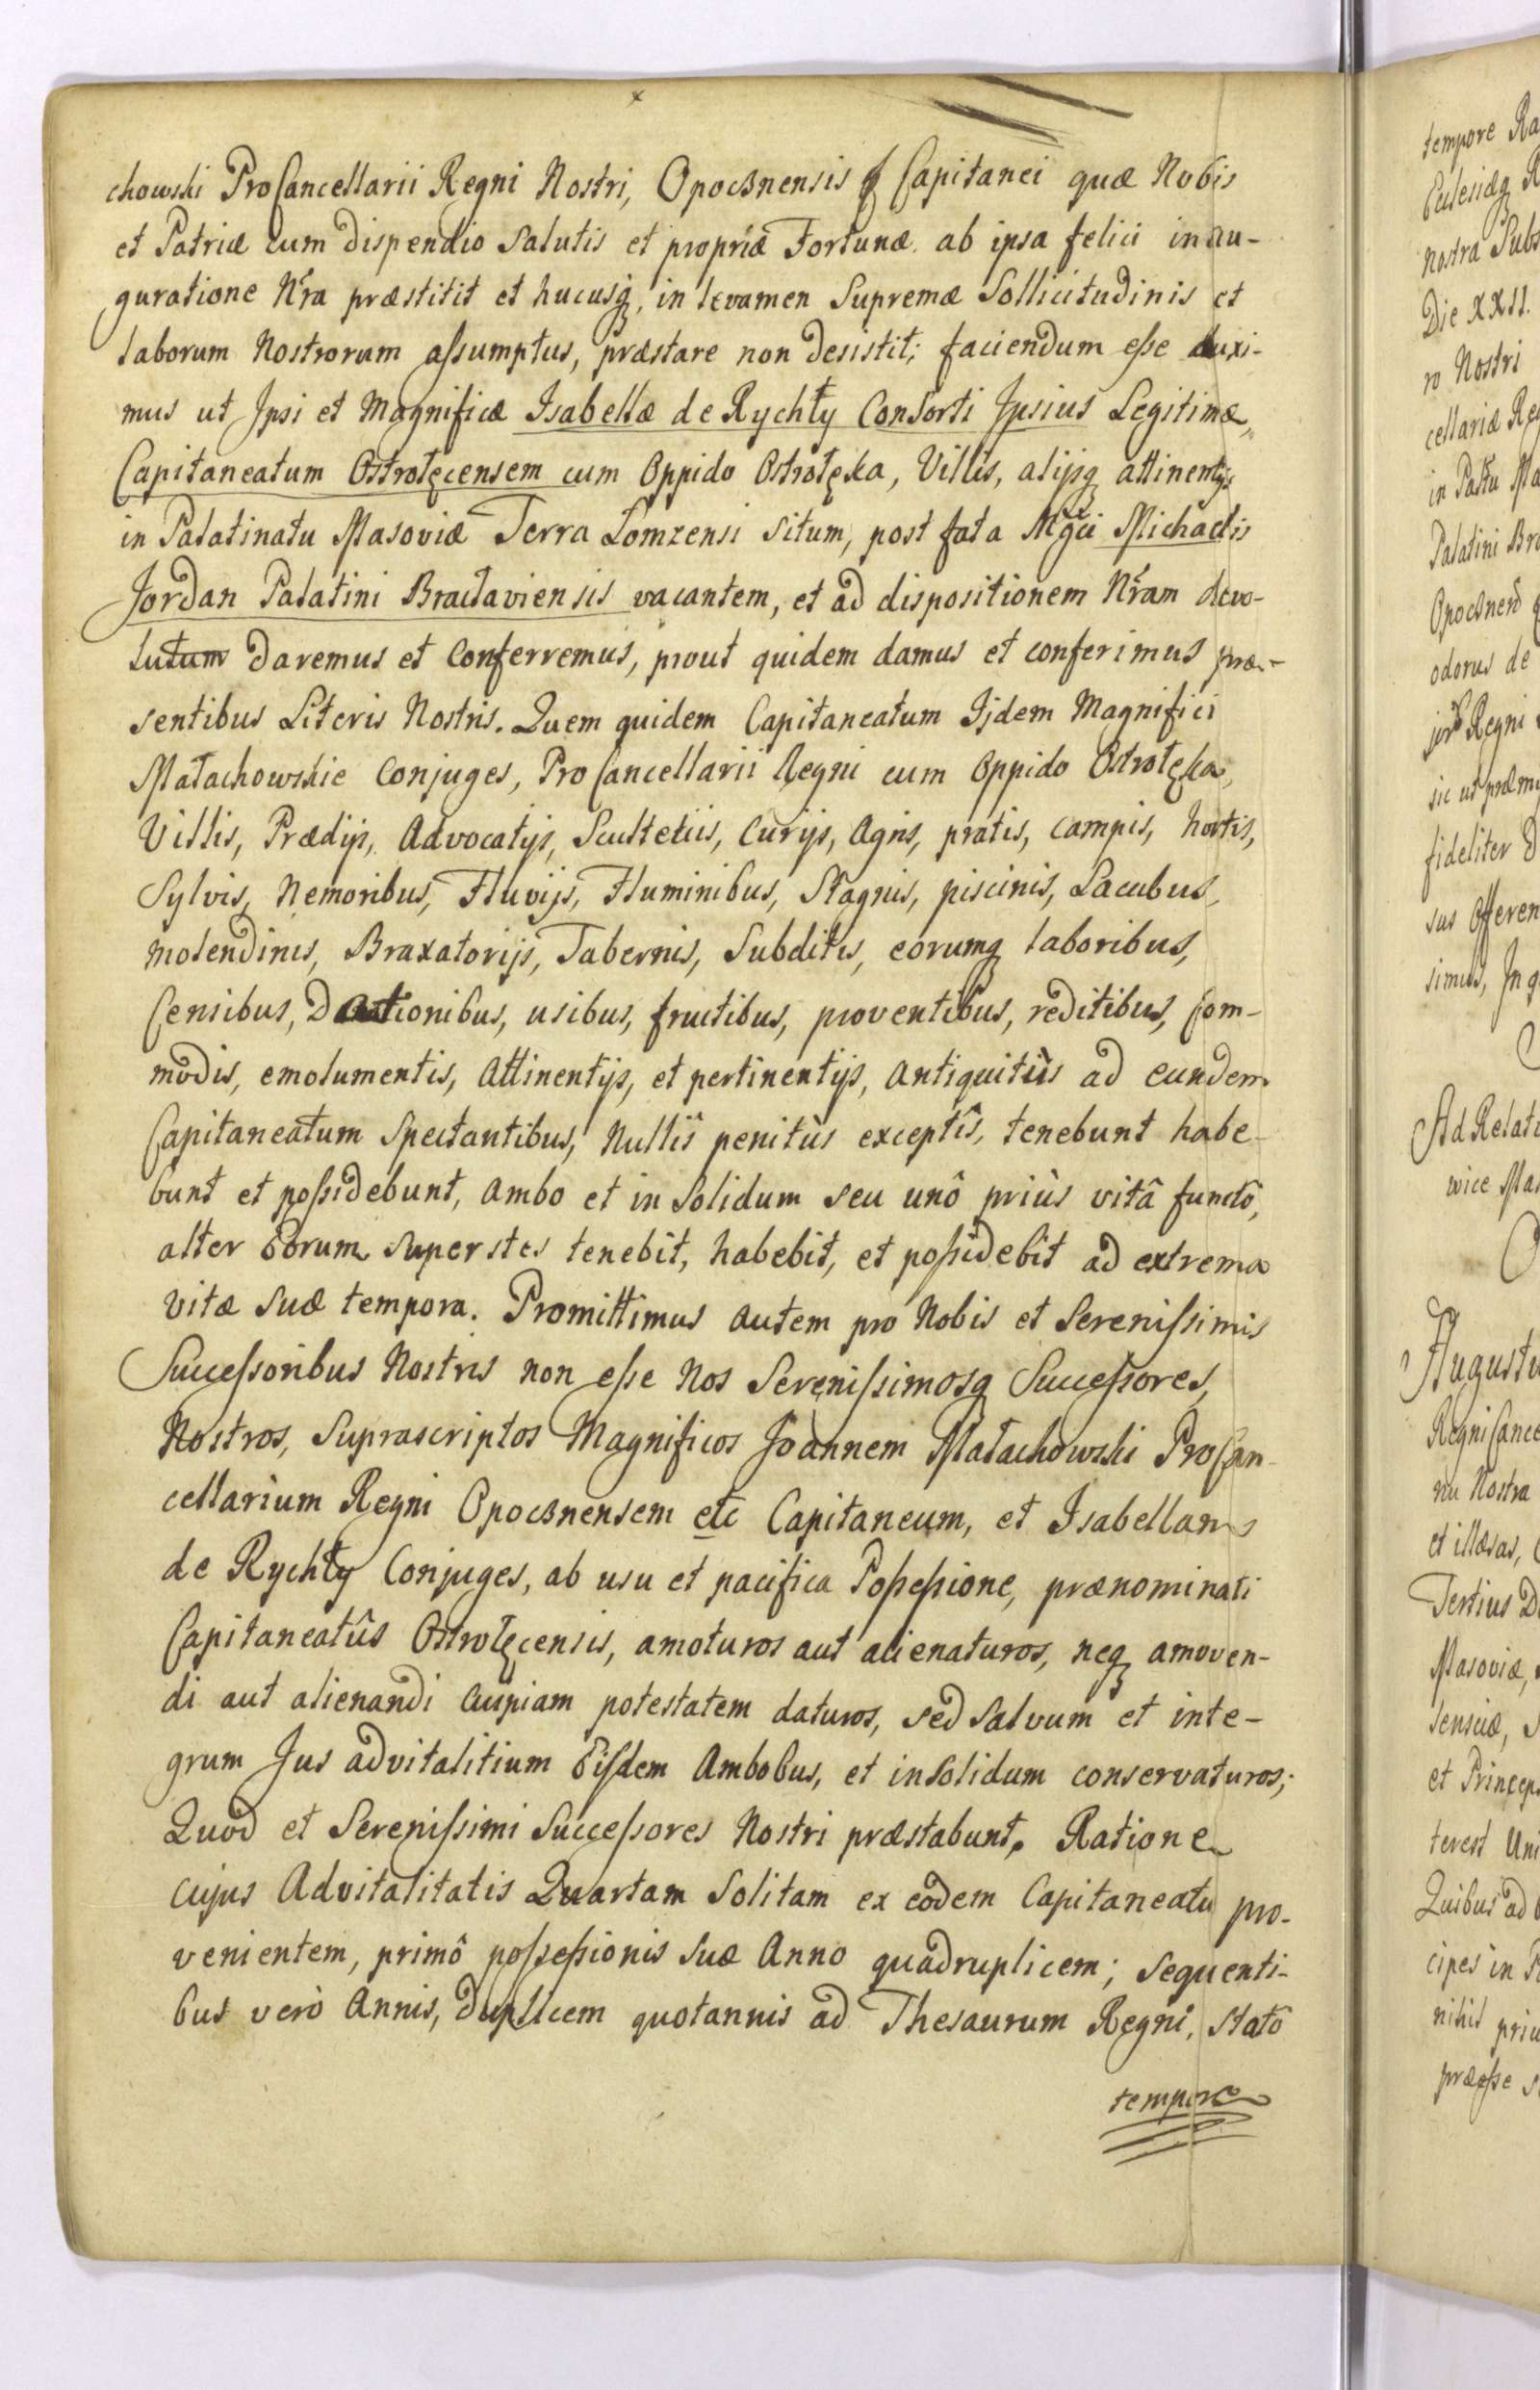 chowski ProCancellarii Regni Nostri, Opocznensis & Capitanei quæ Nobis
et Patriæ cum dispendio Salutis et propriæ Fortunæ ab ipsa felici inau-
guratione Nra præstitit et hucusq, in levamen Supremæ Sollicitudinis et
laborum Nostrorum assumptus, præstare non desistit; faciendum esse duxi-
mus ut Ipsi et Magnificæ Isabellæ de Rychły Consorti Ipsius Legitimæ,
Capitaneatum Ostrołęcensem cum Oppido Ostrołęka, Villis, alijsq attinentijs
in Palatinatu Masoviæ Terra Lomzensi situm, post fata Mgci Michaelis
Jordan Palatini Braclaviensis vacantem, et ad dispositionem Nram devo-
lutum daremus et Conferremus, prout quidem damus et conferimus præ-
sentibus Literis Nostris. Quem quidem Capitaneatum Ijdem Magnifici
Małachowskie Conjuges, ProCancellarii Regni cum Oppido Ostrołęka,
Villis, Prædijs, Advocatijs, Scultetiis, Curijs, Agris, pratis, campis, hortis,
Sylvis, Nemoribus, Fluvijs, Fluminibus, Stagnis, piscinis, Lacubus,
molendinis, Braxatorijs, Tabernis, Subditis, eorumq laboribus,
Censibus, Dationibus, usibus, fructibus, proventibus, reditibus, Com-
modis, emolumentis, Attinentijs, et pertinentijs, Antiquitùs ad eundem
Capitaneatum Spectantibus, Nullis penitùs exceptîs, tenebunt habe-
bunt et possidebunt, Ambo et in Solidum seu unô priùs vitâ functô,
alter Eorum superstes tenebit, habebit, et possidebit ad extrema
vitæ suæ tempora. Promittimus autem pro Nobis et Serenissimis
Successoribus Nostris non esse Nos Serenissimosq Successores,
Nostros, Suprascriptos Magnificos Joannem Małachowski ProCan-
cellarium Regni Opocznensem etc Capitaneum, et Isabellam
de Rychły Conjuges, ab usu et pacifica Possessione, prænominati
Capitaneatûs Ostrołęcensis, amoturos aut alienaturos, neq amoven-
di aut alienandi cuipiam potestatem daturos, sed Salvum et inte-
grum Jus advitalitium Eisdem Ambobus, et in Solidum conservaturos;
Quod et Serenissimi Successores Nostri præstabunt. Ratione
cujus Advitalitatis Quartam Solitam ex eodem Capitaneatu pro-
venientem, primô possessionis suæ Anno quadruplicem; sequenti-
bus verò Annis, duplicem quotannis ad Thesaurum Regni, stato
tempore
tempore
nostra
Die XXII.
ro Nostri
Palatini
odorus de
Regni
fideliter
simus,
Ad
Nostra
et illæsas,
Tertius
Masoviæ,
et
terest
Quibus ad
cipes in
nihil
præesse